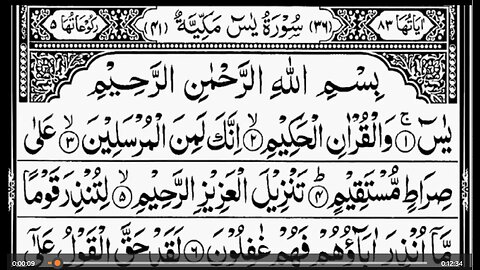 اٰیَاتُهَا ٨٣ (٣٦) سُوْرَةُ یٰسٓ مَكِّیَّةٌ (٤١) رُكُوْعَاتُهَا ٥
بِسْمِ اللّٰهِ الرَّحْمٰنِ الرَّحِیْمِ
یٰسٓ ۚ﴿١﴾ وَالْقُرْاٰنِ الْحَكِیْمِ ۙ﴿٢﴾ اِنَّكَ لَمِنَ الْمُرْسَلِیْنَ ۙ﴿٣﴾ عَلٰی
صِرَاطٍ مُّسْتَقِیْمٍ ؕ﴿٤﴾ تَنْزِیْلَ الْعَزِیْزِ الرَّحِیْمِ ۙ﴿٥﴾ لِتُنْذِرَ قَوْمًا
مَّاۤ اُنْذِرَ اٰبَآؤُهُمْ فَهُمْ غٰفِلُوْنَ ﴿٦﴾ لَقَدْ حَقَّ الْقَوْلُ عَلٰۤی
0:00:09 0:12:34